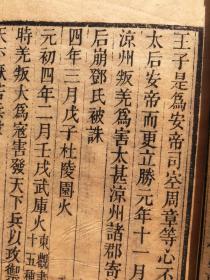 王子是為安帝司空周章等心不
太后安帝而更立勝元年十一月
涼州叛羌為害太甚涼州諸郡寄
后崩鄧氏被誅
四年三月戊子杜陵園火
元初四年二月壬戌武庫火東觀書
十五種
時羌叛大為寇害發天下兵以攻禦